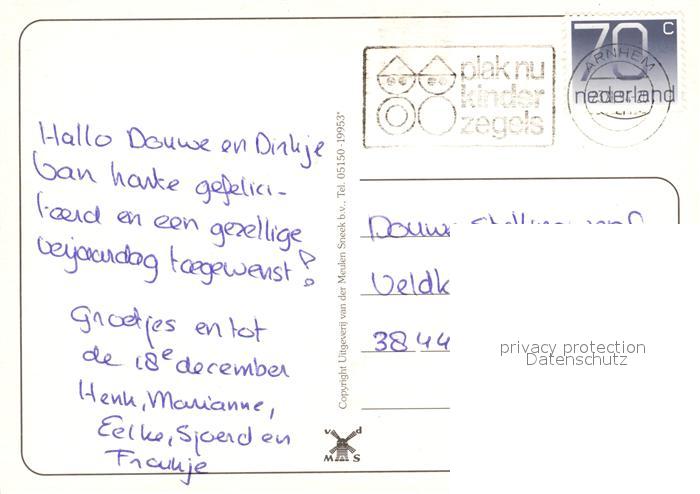 70 c
nederland
ARNHEM
plak nu
kinder
zegels
Hallo Douwe en Dirkje
van harte gefelici-
teerd en een gezellige
verjaardag toegewenst!
Groetjes en tot
de 18e december
Henk, Marianne,
Eelke, Sjoerd en
Froukje
Copyright Uitgeverij van der Meulen Sneek b.v., Tel. 05150-19953*
v d
M S
Douwe
Veldk
3844
privacy protection
Datenschutz